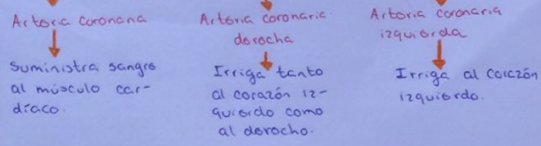 Arteria coronaria
Suministra sangre
al músculo car-
díaco.
Arteria coronaria
derecha
Irriga tanto
al corazón iz-
quierdo como
al derecho.
Arteria coronaria
izquierda
Irriga al corazón
izquierdo.